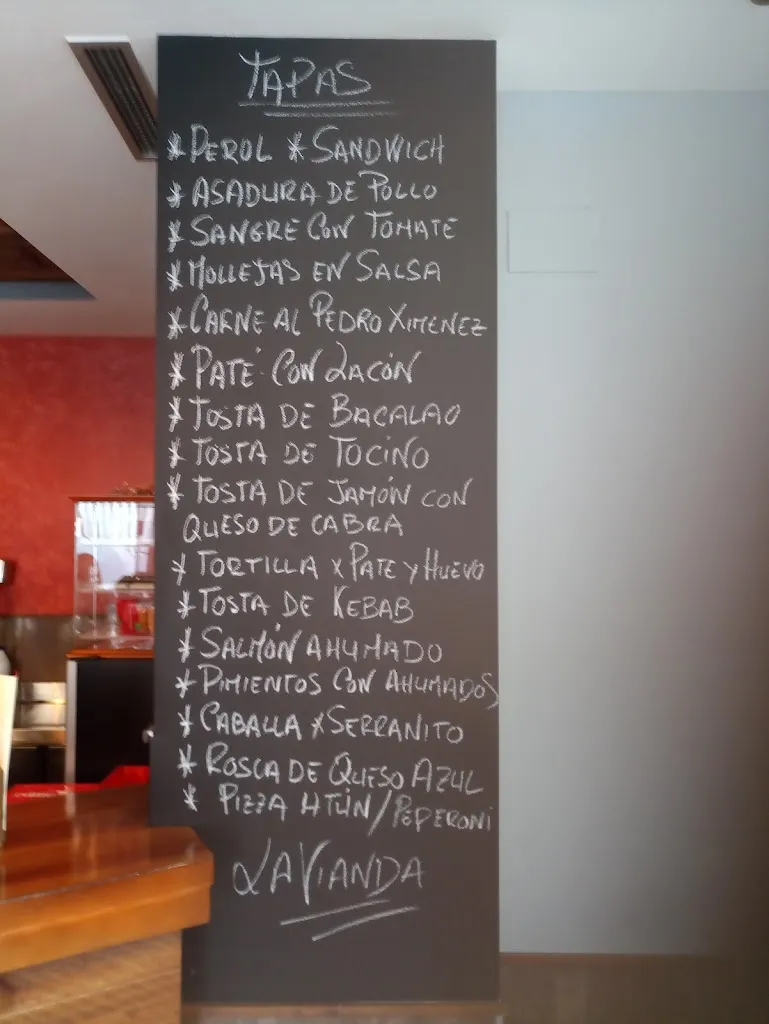 TAPAS
* PEROL * SANDWICH
* ASADURA DE POLLO
* SANGRE CON TOMATE
* MOLLEJAS EN SALSA
* CARNE AL PEDRO XIMENEZ
* PATÉ CON LACÓN
* TOSTA DE BACALAO
* TOSTA DE TOCINO
* TOSTA DE JAMÓN CON
QUESO DE CABRA
* TORTILLA * PATE Y HUEVO
* TOSTA DE KEBAB
* SALMÓN AHUMADO
* PIMIENTOS CON AHUMADOS
* CABALLA * SERRANITO
* ROSCA DE QUESO AZUL
* PIZZA ATÚN / PEPERONI
LA VIANDA